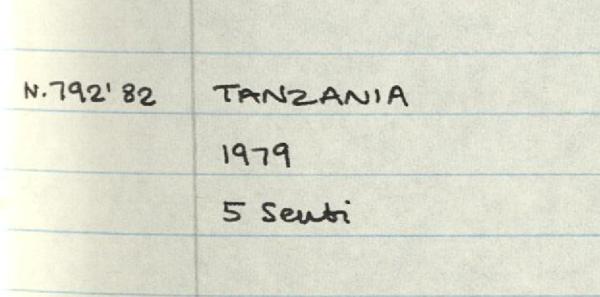 N.792'82 TANZANIA
1979
5 Senti